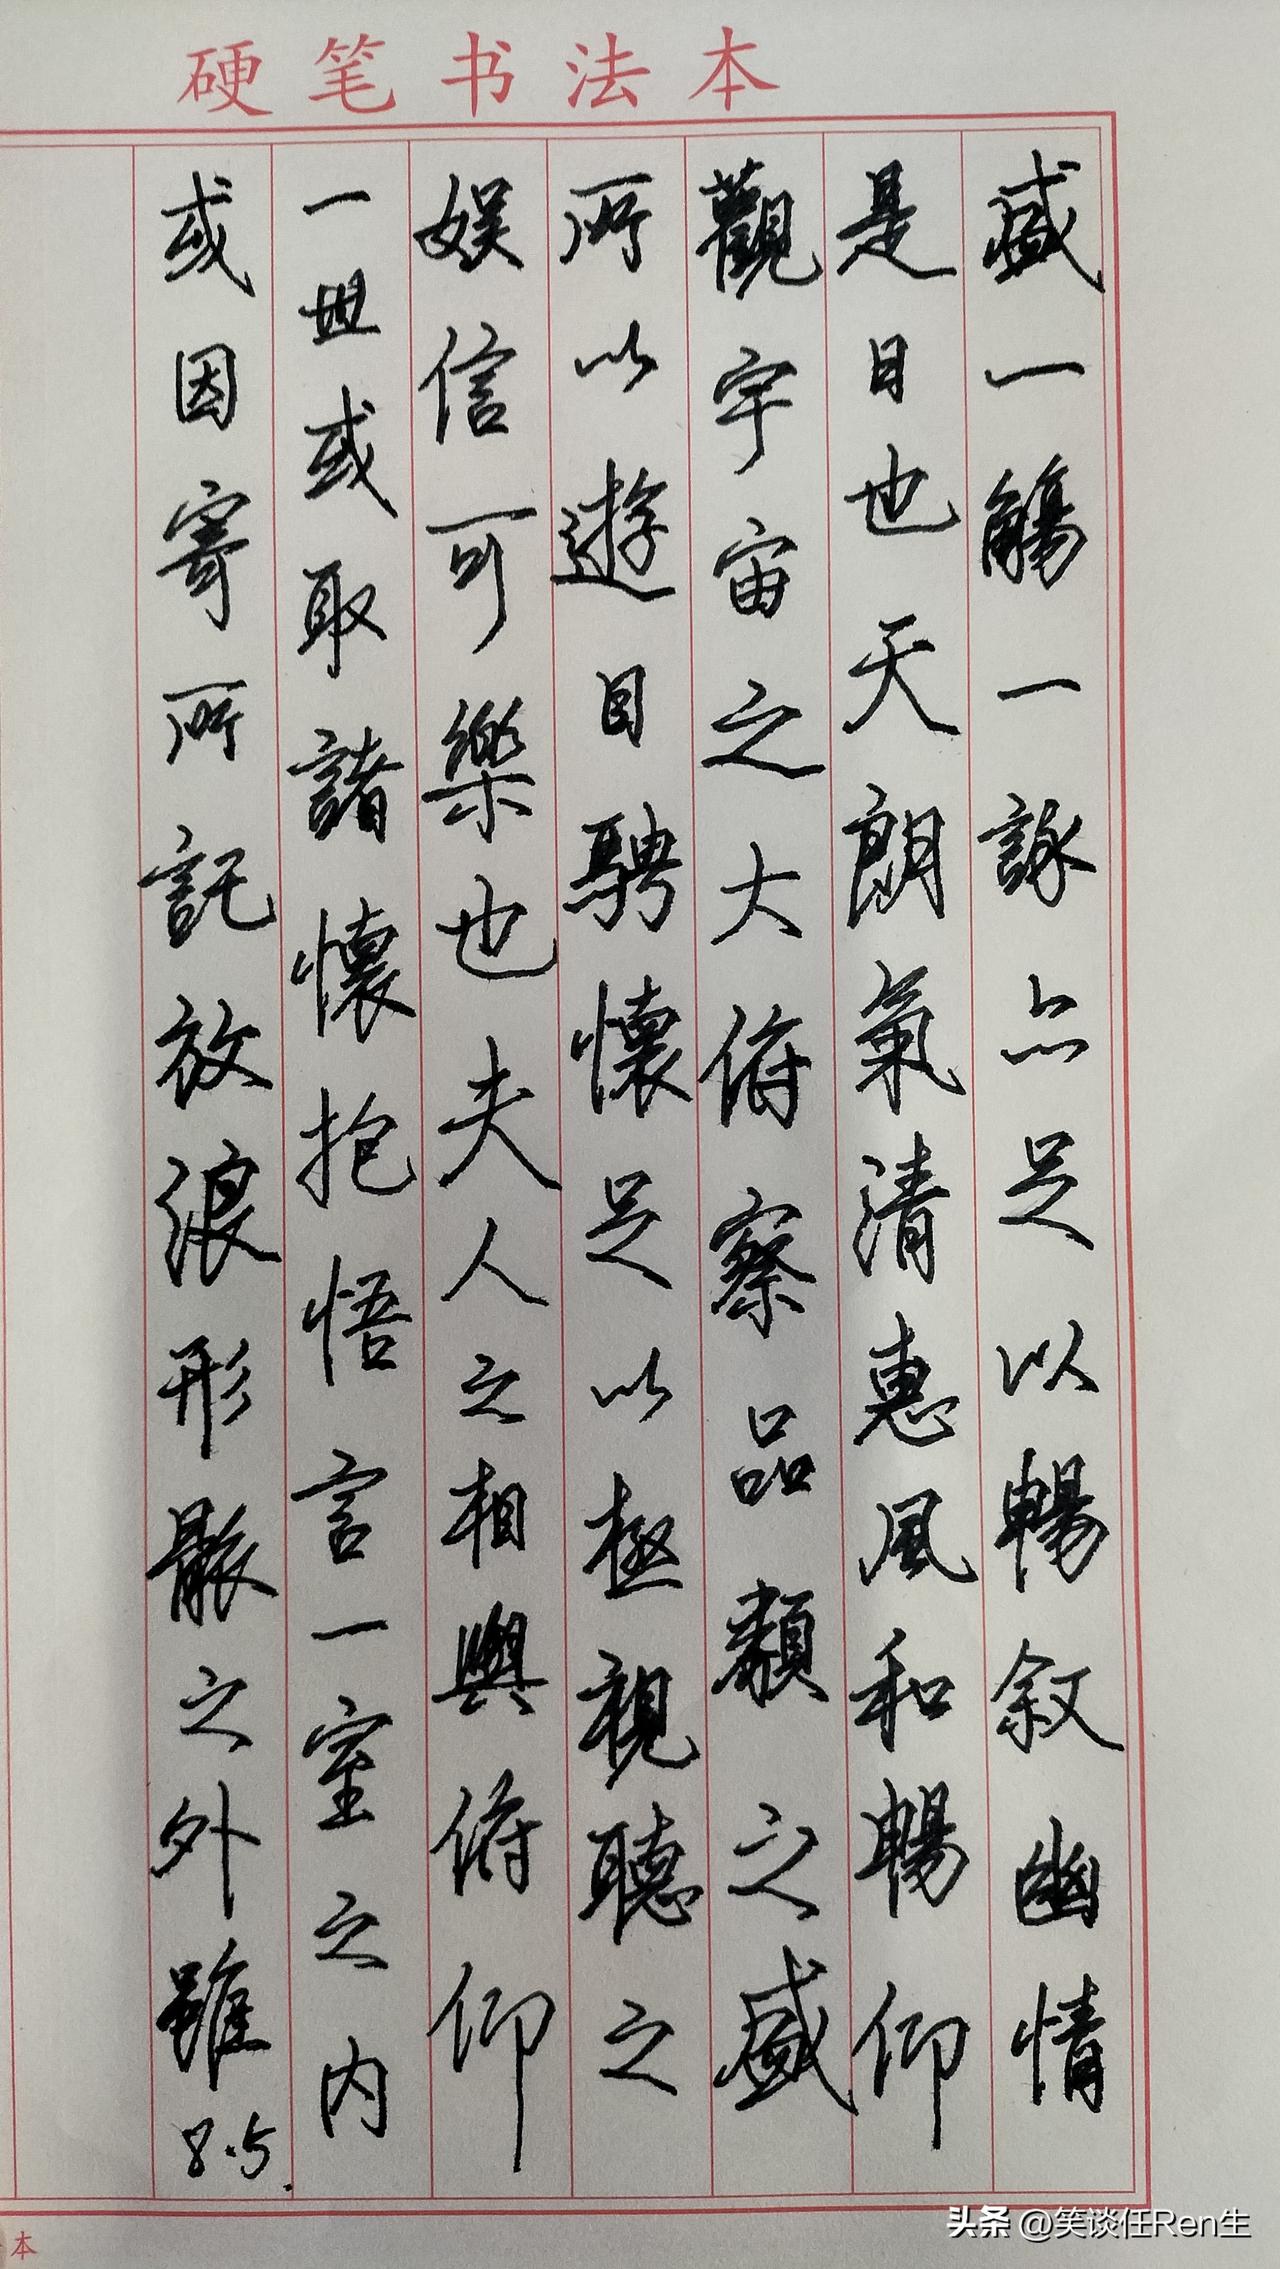 硬笔书法本
盛一觴一詠亦足以暢叙幽情
是日也天朗氣清惠風和暢仰
觀宇宙之大俯察品類之盛
所以遊目騁懷足以極視聽之
娱信可樂也夫人之相與俯仰
一世或取諸懷抱悟言一室之内
或因寄所託放浪形骸之外雖
8.5.
本
头条 @笑谈任Ren生